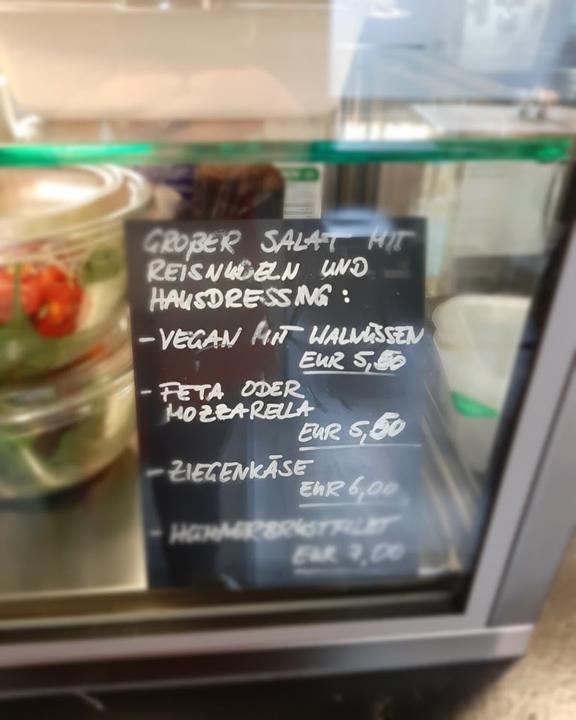 GROßER SALAT MIT
REISNUDELN UND
HAUSDRESSING :
- VEGAN MIT WALNÜSSEN
EUR 5,50
- FETA ODER
MOZZARELLA
EUR 5,50
- ZIEGENKÄSE
EUR 6,00
- HÜHNERBRUSTFILET
EUR 7,00